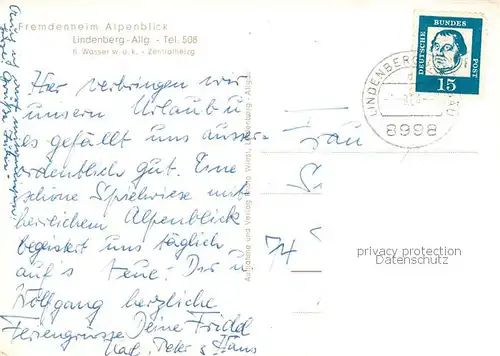 Fremdenheim Alpenblick
Lindenberg-Allg. - Tel. 508
fl. Wasser w. u. k. - Zentralheizg
Hier verbringen wir
unsern Urlaub u
es gefällt uns ausser-
ordentlich gut. Eine
schöne Spielwiese mit
herrlichem Alpenblick
begeistert uns täglich
auf's Neue. Dir u
Wolfgang herzliche
Feriengrüsse Deine Friedel
Karl, Peter & Hans
Auch ich
Grüße
Aufnahme und Verlag Wiest, Lindenberg-Allgäu
DEUTSCHE BUNDES POST
15
LINDENBERG
8998
Frau
74
privacy protection
Datenschutz